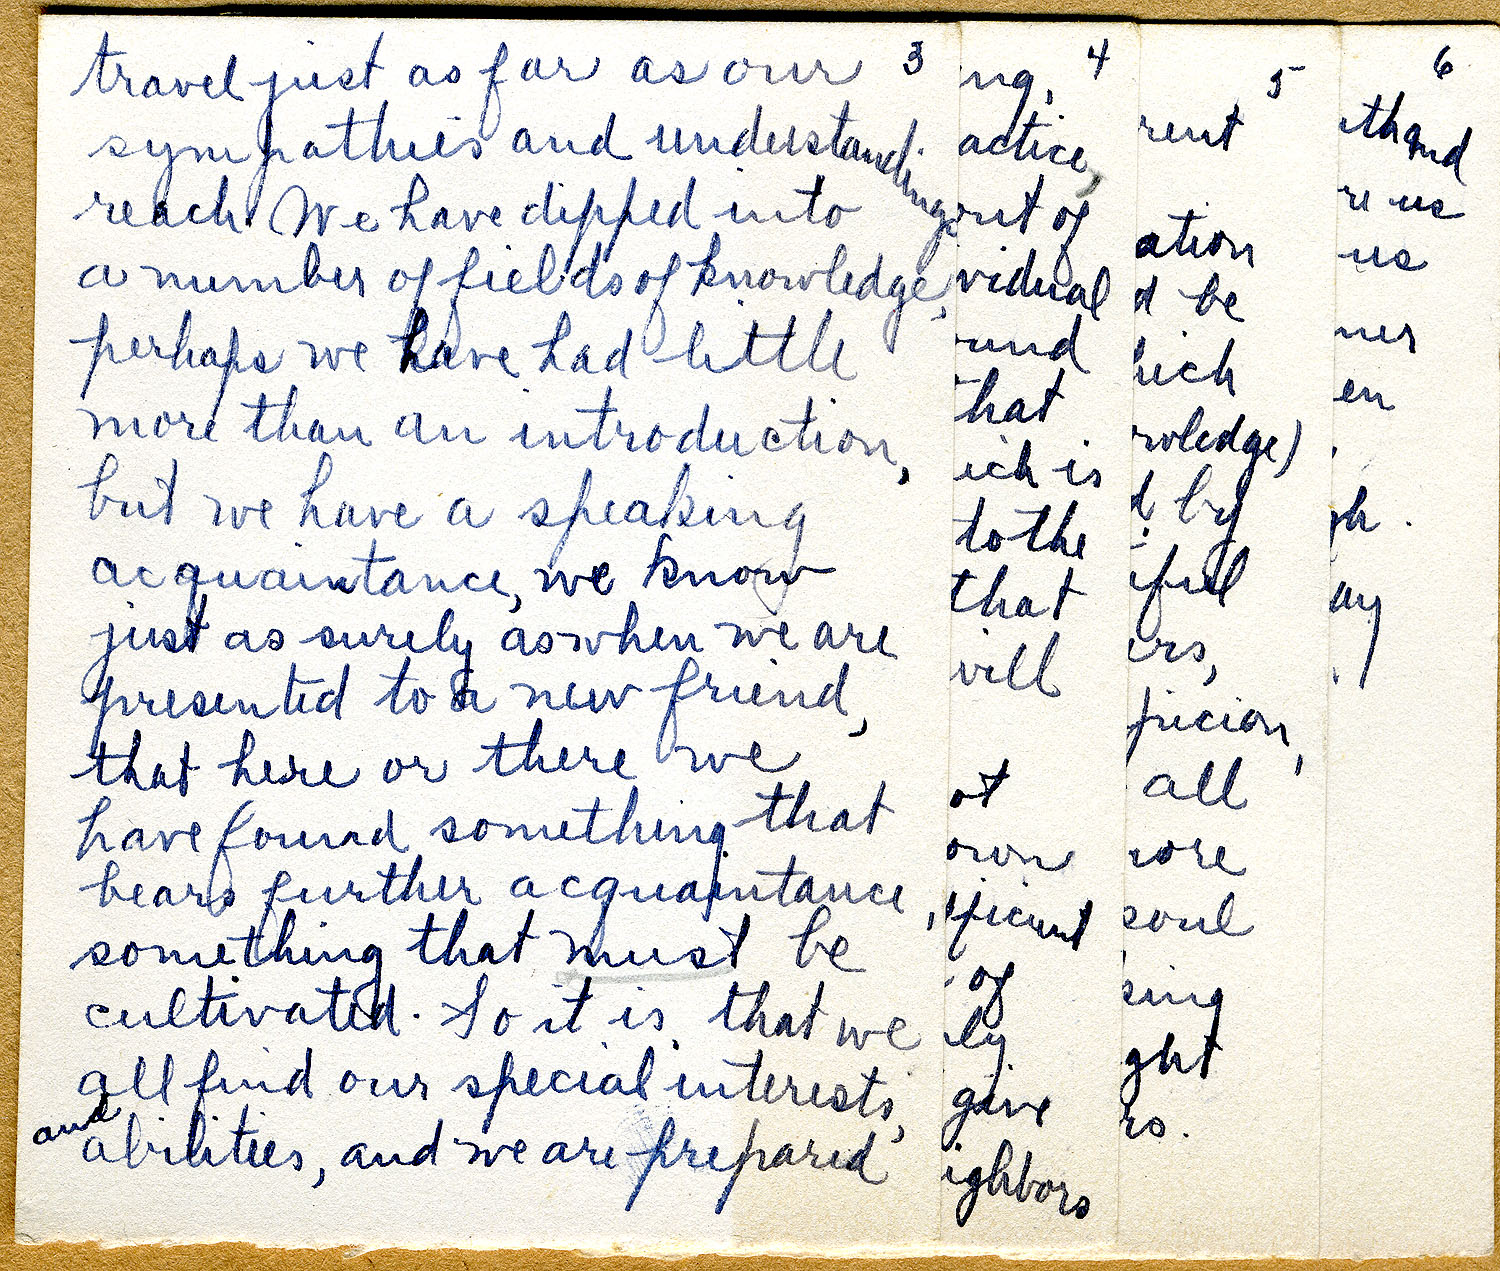 3
travel just as far as our
sympathies and understandings
reach. We have dipped into
a number of fields of knowledge,
perhaps we have had little
more than an introduction,
but we have a speaking
acquaintance, we know
just as surely as when we are
presented to a new friend,
that here or there we
have found something that
bears further acquaintance,
something that must be
cultivated. So it is, that we
all find our special interests,
and
abilities, and we are prepared
4
ng,
actice,
out of
vidual
ound
that
ich is
to the
that
will
ot
own
ificient
of
ly
give
ighbors
5
rent
ation
d be
hich
owledge)
d by
iful
ers,
picion,
all
nore
soul
sing
ght
rs.
6
thand
re us
us
ner
en
gh.
ay